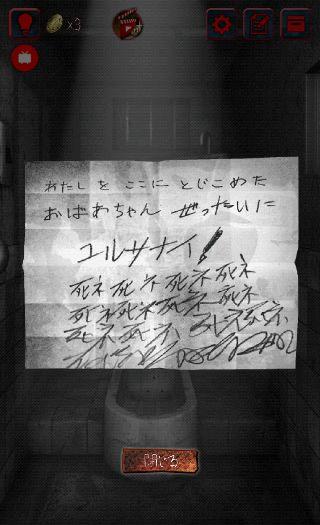 ×3
わたし を ここに とじこめた
おばあちゃん ぜったいに
ユルサナイ!
死ネ 死ネ 死ネ 死ネ
死ネ 死ネ 死ネ 死ネ
死ネ 死ネ
閉じる